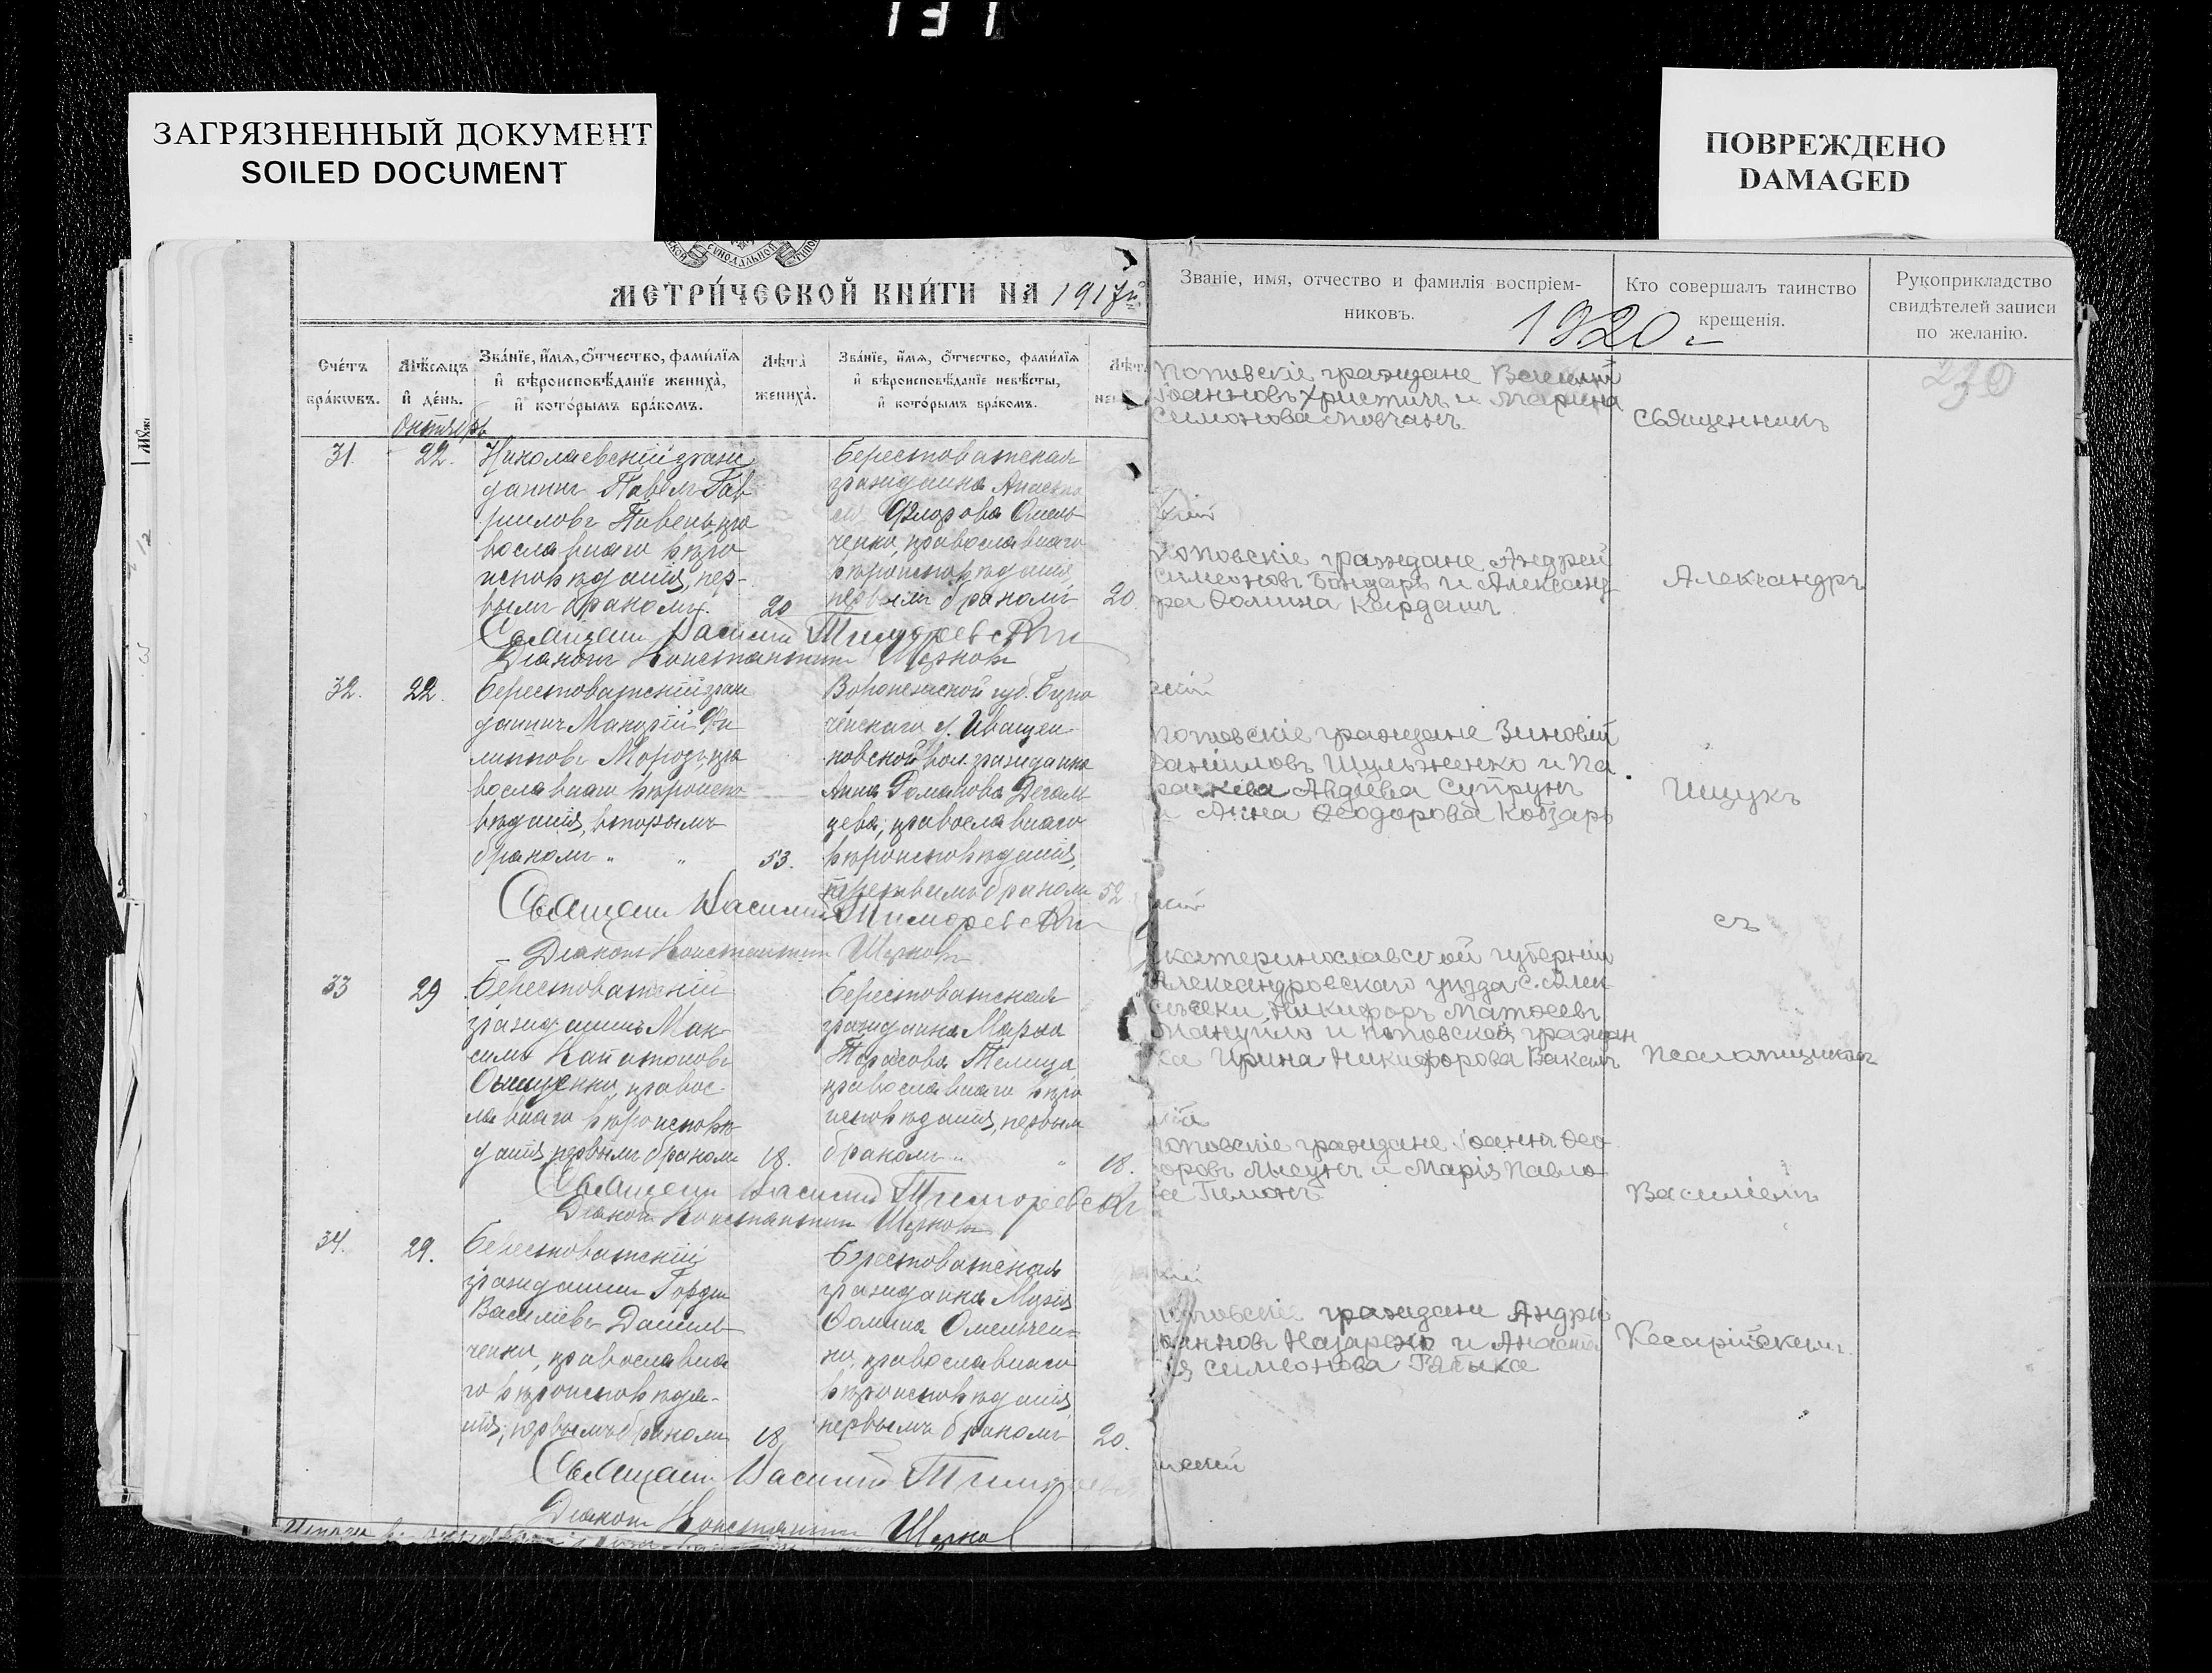 131
ЗАГРЯЗНЕННЫЙ ДОКУМЕНТ
SOILED DOCUMENT
ПОВРЕЖДЕНО
DAMAGED
МЕТРИ́ЧЕСКОЙ КНИ́ГИ НА 1917й
Сче́тъ бра́кѡвъ.
Мѣ́сяцъ и҆ де́нь.
Зва́нїе, и҆́мя, ѻ҆́тчество, фами́лїя и҆ вѣроисповѣ́данїе жениха̀, и҆ кото́рымъ бра́комъ.
Лѣ́та жениха̀.
Зва́нїе, и҆́мя, ѻ҆́тчество, фами́лїя и҆ вѣроисповѣ́данїе невѣ́сты, и҆ кото́рымъ бра́комъ.
Октябрь
31.
22.
Николаевскій граж
данинъ Павелъ Гав
риловъ Пивень, пра
вославнаго вѣро
исповѣданія, пер-
вымъ бракомъ.
20
Берестоватская
гражданка Анаста
Флорова Омель
ченко, православнаго
вѣроисповѣданія,
первымъ бракомъ
20.
Священ Василій
Діаконъ Константинъ
32.
22.
Берестоватскій граж
данинъ Макарій Фи
липповъ Морозъ, пра
вославнаго вѣроиспо
вѣданія, вторымъ
бракомъ " "
53.
Воронежской губ. Бирю
ченскаго у. Иващен
ковской вол. гражданка
Анна Романова
православнаго
вѣроисповѣданія,
третьимъ бракомъ
52
Священ Василій
Діаконъ Константинъ
33
29
Берестоватскій
гражданинъ Мак-
симъ
правос-
лавнаго вѣроисповѣ
данія, первымъ бракомъ
18.
Берестоватская
гражданка Марѳа
Тарасова Телица,
православнаго вѣро
исповѣданія, первым
бракомъ " "
18.
Священ Василій
Діаконъ Константинъ
34.
29.
Берестоватскій
гражданинъ Гордій
Василіевъ Даниль
ченко, православна
го вѣроисповѣда-
нія, первымъ бракомъ
18
Берестоватская
гражданка Марія
Ѳомина Омельчен=
ко, православнаго
вѣроисповѣданія
первымъ бракомъ
20.
Священ Василій
Діаконъ Константинъ
Званіе, имя, отчество и фамилія воспріем-
никовъ.
Кто совершалъ таинство
крещенія.
Рукоприкладство
свидѣтелей записи
по желанію.
1920
230
Поповскіе граждане Василій
Іоанновъ Христичъ и Марина
Симонова Мовчанъ.
Священникъ
Поповскіе граждане Андрей
Симеоновъ Бондарь и Александ
ра Ѳомина Кардашъ.
Александръ
Поповскіе граждане Зиновій
Даніиловъ Шульженко и Па
раскева Авдіева Супрунъ
и Анна Ѳеодорова Кобзарь
Ищукъ
съ
Екатеринославской губерніи
Александровскаго уѣзда с. Алек
сѣевки Никифоръ Матѳеевъ
Мануйло и Поповской граждан
ка Ирина Никифорова Вакалъ
Псаломщикомъ
Поповскіе граждане Іоаннъ Ѳео
доровъ Мысунъ и Марія Павло
ва Тимонъ
Василіемъ
Поповскіе граждане Андрей
Іоанновъ Назаренко и Анаста
ія Симеонова
Кесарійскимъ.